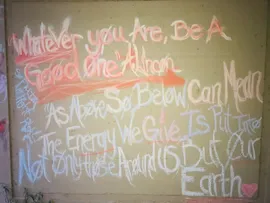 "Whatever you Are, Be A
Good One" A. Lincoln
As Above So Below Can Mean
The Energy We Give Is Put Into
Not Only Those Around US But Our
Earth